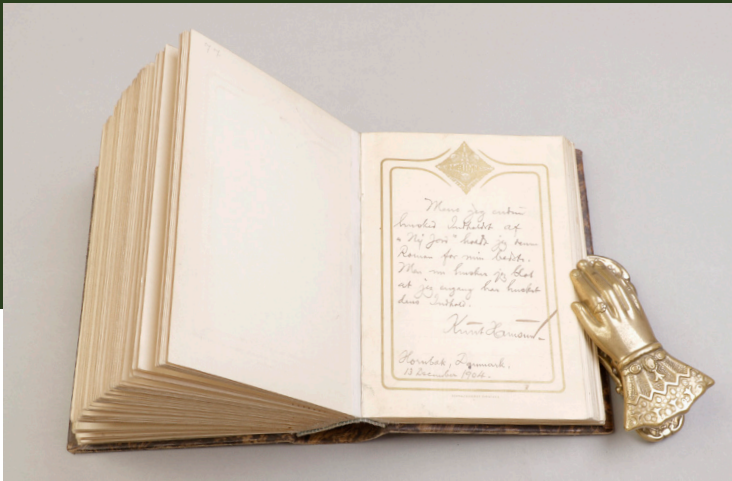 Mens jeg endnu
husked Indholdet af
„Ny Jord" holdt jeg denne
Roman for min bedste.
Men nu husker jeg blot
at jeg engang har husket
dens Indhold.
Knut Hamsun
Hornbæk, Danmark.
13 December 1904.